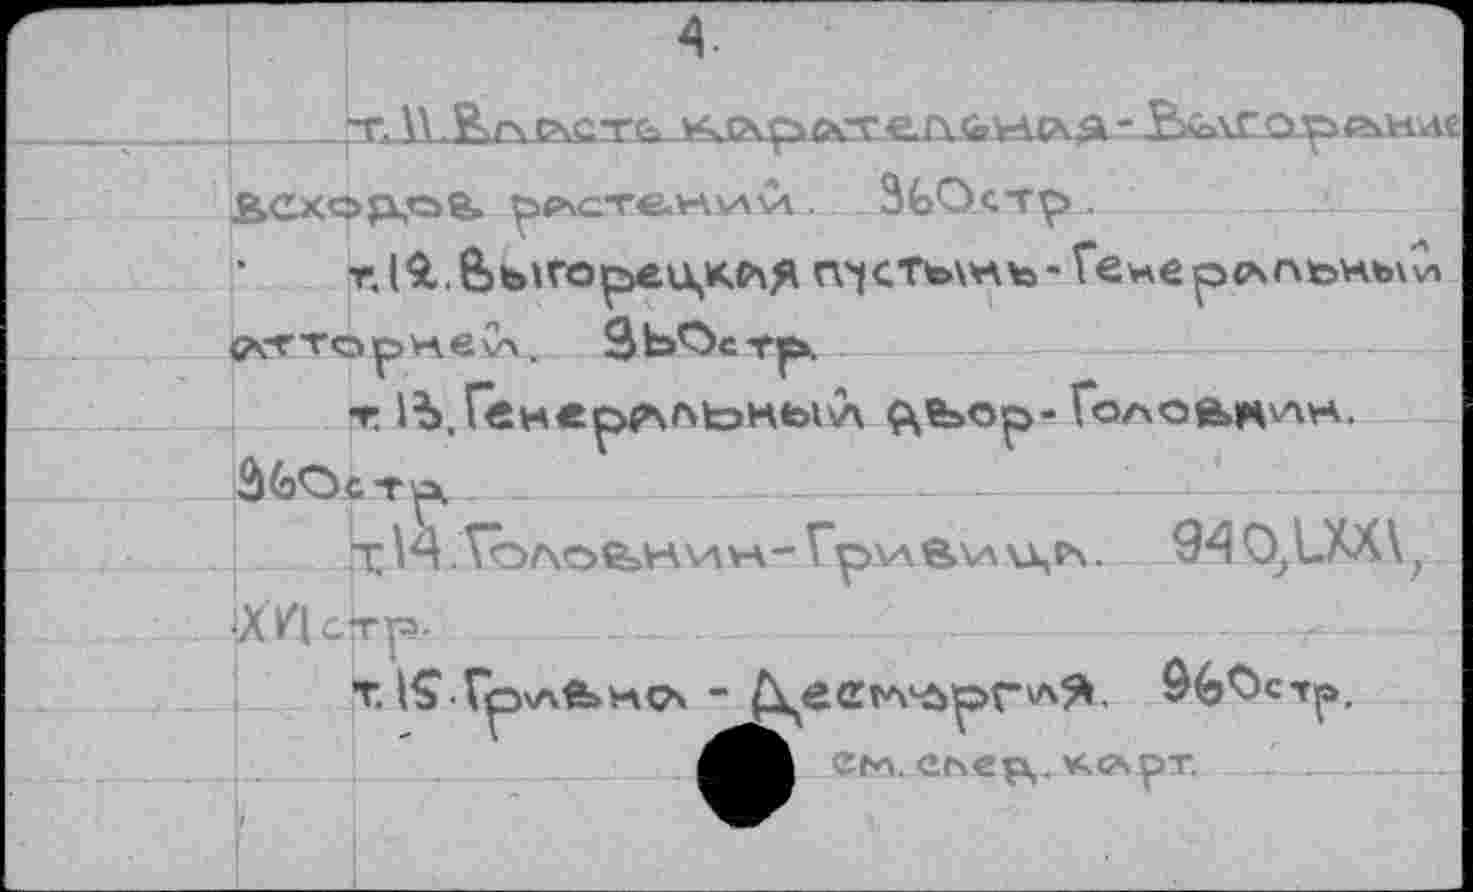 4.
т. 11. Власть карательная - Выгорание
всходов растений. 960стр.
т. 12. Выгорецкая пустынь - Генеральный
атторней. 960стр.
т. 13. Генеральный двор - Головнин.
960стр.
т. 14. Головнин - Гривица. 940, LXXI,
XVI стр.
т. 15. Гривна - Десмургия. 960стр.
см. след. карт.